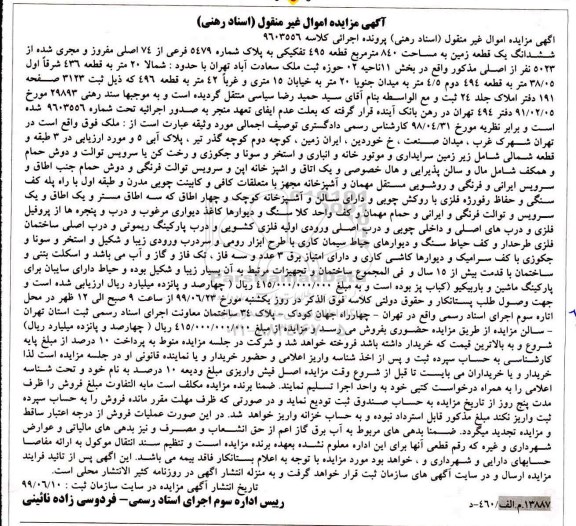 آگهی مزایده اموال غیر منقول (اسناد رهنی)
آگهی مزایده اموال غیر منقول (اسناد رهنی) پرونده اجرائی کلاسه ۹۶۰۳۵۵۶
ششدانگ یک قطعه زمین به مساحت ۸۴۰ مترمربع قطعه ۴۹۵ تفکیکی به پلاک شماره ۵۴۷۹ فرعی از ۷۴ اصلی مفروز و مجزی شده از
۵۰۲۳ نفر از اصلی مذکور واقع در بخش ۱۱ناحیه ۰۲ حوزه ثبت ملک سعادت آباد تهران با حدود : شمالا ۲۰ متر به قطعه ۴۳۶ شرقاً اول
۳۸/۰۵ متر به قطعه ۴۹۴ دوم ۴/۵ متر به میدان جنوبا ۲۰ متر به خیابان ۱۵ متری و غرباً ۴۲ متر به قطعه ۴۹۶ که ذیل ثبت ۳۱۲۳ صفحه
۱۹۱ دفتر املاک جلد ۲۴ ثبت و مع الواسطه بنام آقای سید حمید رضا سیاسی منتقل گردیده است و به موجبها سند رهنی ۲۹۸۹۳ مورخ
۹۱/۰۲/۰۵ دفتر ۴۹۴ تهران در رهن بانک آینده قرار گرفته که بعلت عدم ایفای تعهد منجر به صدور اجرائیه تحت شماره ۹۶۰۳۵۵۶ شده
است و برابر نظریه مورخ ۹۸/۰۴/۳۱ کارشناس رسمی دادگستری توصیف اجمالی مورد وثیقه عبارت است از : ملک فوق واقع است در
تهران شهرک غرب ، میدان صنعت ، خ خوردین ، ایران زمین ، کوچه دوم کوچه گذر تیر ، پلاک آبی ۵ و مورد ارزیابی در ۳ طبقه و
قطعه شمالی شامل زیر زمین سرایداری و موتور خانه و انباری و استخر و سونا و جکوزی و رخت کن با سرویس توالت و دوش حمام
و همکف شامل مال و سالن پذیرایی و هال خصوصی و یک اتاق و آشپز خانه اپن و سرویس توالت فرنگی و دوش حمام جنب اطاق و
سرویس ایرانی و فرنگی و روشویی مستقل مهمان و آشپزخانه مجهز با متعلقات کافی و کابینت چوبی مدرن و طبقه اول با راه پله کف
سنگی و حفاظ رفورژه فلزی با روکش چوبی و دارای سالن خصوصی و آشپزخانه کوچک و چهار اطاق که سه اطاق مستر و یک اطاق و یک
سرویس و توالت فرنگی و ایرانی و حمام مهمان و کف واحد کلا سنگ و دیوارها کاغذ دیواری مرغوب و درب و پنجره ها از پروفیل
فلزی و درب های اصلی و داخلی چوبی و درب اصلی ورودی اولیه فلزی کشویی و درب پارکینگ ریموتی و درب اصلی ساختمان
فلزی طرحدار و کف حیاط سنگ و دیوارهای حیاط سیمان کاری با طرح ابزار رومی و سردرب ورودی زیبا و شکیل و استخر و سونا و
جکوزی با کف سرامیک و دیوارها کاشی کاری و دارای امتیاز برق ۳ عدد و سه فاز ، تک فاز و گاز و آب می باشد و اسکلت بتنی و
ساختمان با قدمت بیش از ۱۵ سال و فی المجموع ساختمان و تجهیزات مرتبط به آن بسیار زیبا و شکیل بوده و حیاط دارای سایبان برای
پارکینگ ماشین و باربیکیو (کباب پز بوده است و به مبلغ ۴۱۵/۰۰۰/۰۰۰/۰۰۰ ریال (چهارصد و پانزده میلیارد ریال ارزیابی شده است و
جهت وصول طلب بستانکار و حقوق دولتی کلاسه فوق الذکر در روز یکشنبه مورخ ۹۹/۰۶/۲۳ از ساعت ۹ صبح الی ۱۲ ظهر در محل
اداره سوم اجرای اسناد رسمی واقع در تهران - چهارراه جهان کودک - پلاک ۳۴ ساختمان معاونت اجرای اسناد رسمی ثبت استان تهران
- سالن مزایده از طریق مزایده حضوری بفروش می رسد. و مزایده از مبلغ ۴۱۵/۰۰۰/۰۰۰/۰۰۰ ریال ( چهارصد و پانزده میلیارد ریال)
شروع و به بالاترین قیمت که خریدار داشته باشد فروخته خواهد شد و شرکت در جلسه مزایده منوط به پرداخت ۱۰ درصد از مبلغ پایه
کارشناسی به حساب سپرده ثبت و پس از اخذ شناسه واریز اعلامی و حضور خریدار و یا نماینده قانونی او در جلسه مزایده است لذا
خریدار و یا خریداران می بایست تا قبل از شروع وقت مزایده اصل فیش واریزی مبلغ ودیعه ۱۰ درصد به نام خود و تحت شناسه
اعلامی را به همراه درخواست کتبی خود به واحد اجرا تسلیم نمایند. ضمنا برنده مزایده مکلف است مابه التفاوت مبلغ فروش را ظرف
مدت پنج روز از تاریخ مزایده به حساب صندوق ثبت تودیع نماید و در صورتی که ظرف مهلت مقرر مانده فروش را به حساب سپرده
ثبت واریز نکند مبلغ مذکور قابل استرداد نبوده و به حساب خزانه واریز خواهد شد. در این صورت عملیات فروش از درجه اعتبار ساقط
و مزایده تجدید میگردد. ضمنا بدهی های مربوط به آب برق گاز اعم از حق انشعاب و مصرف و نیز بدهی های مالیاتی و عوارض
شهرداری و غیره که رقم قطعی آنها برای این اداره معلوم نشده بعهده برنده مزایده است و تنظیم سند انتقال موکول به ارائه مفاصا
حسابهای دارایی و شهرداری و ، خواهد بود مورد مزایده با توجه به اعلام بستانکار فاقد بیمه می باشد. این آگهی پس از تائید فرایند
مزایده ارسال و در سایت آگهی های سازمان ثبت قرار خواهد گرفت و به منزله انتشار آگهی در روزنامه کثیر الانتشار محلی است.
تاریخ انتشار آگهی مزایده در سایت سازمان ثبت : ۹۹/۰۶/۱۰
رییس اداره سوم اجرای اسناد رسمی- فردوسی زاده نائینی
۱۳۸۸۷.م.الف/۴۶۰-د